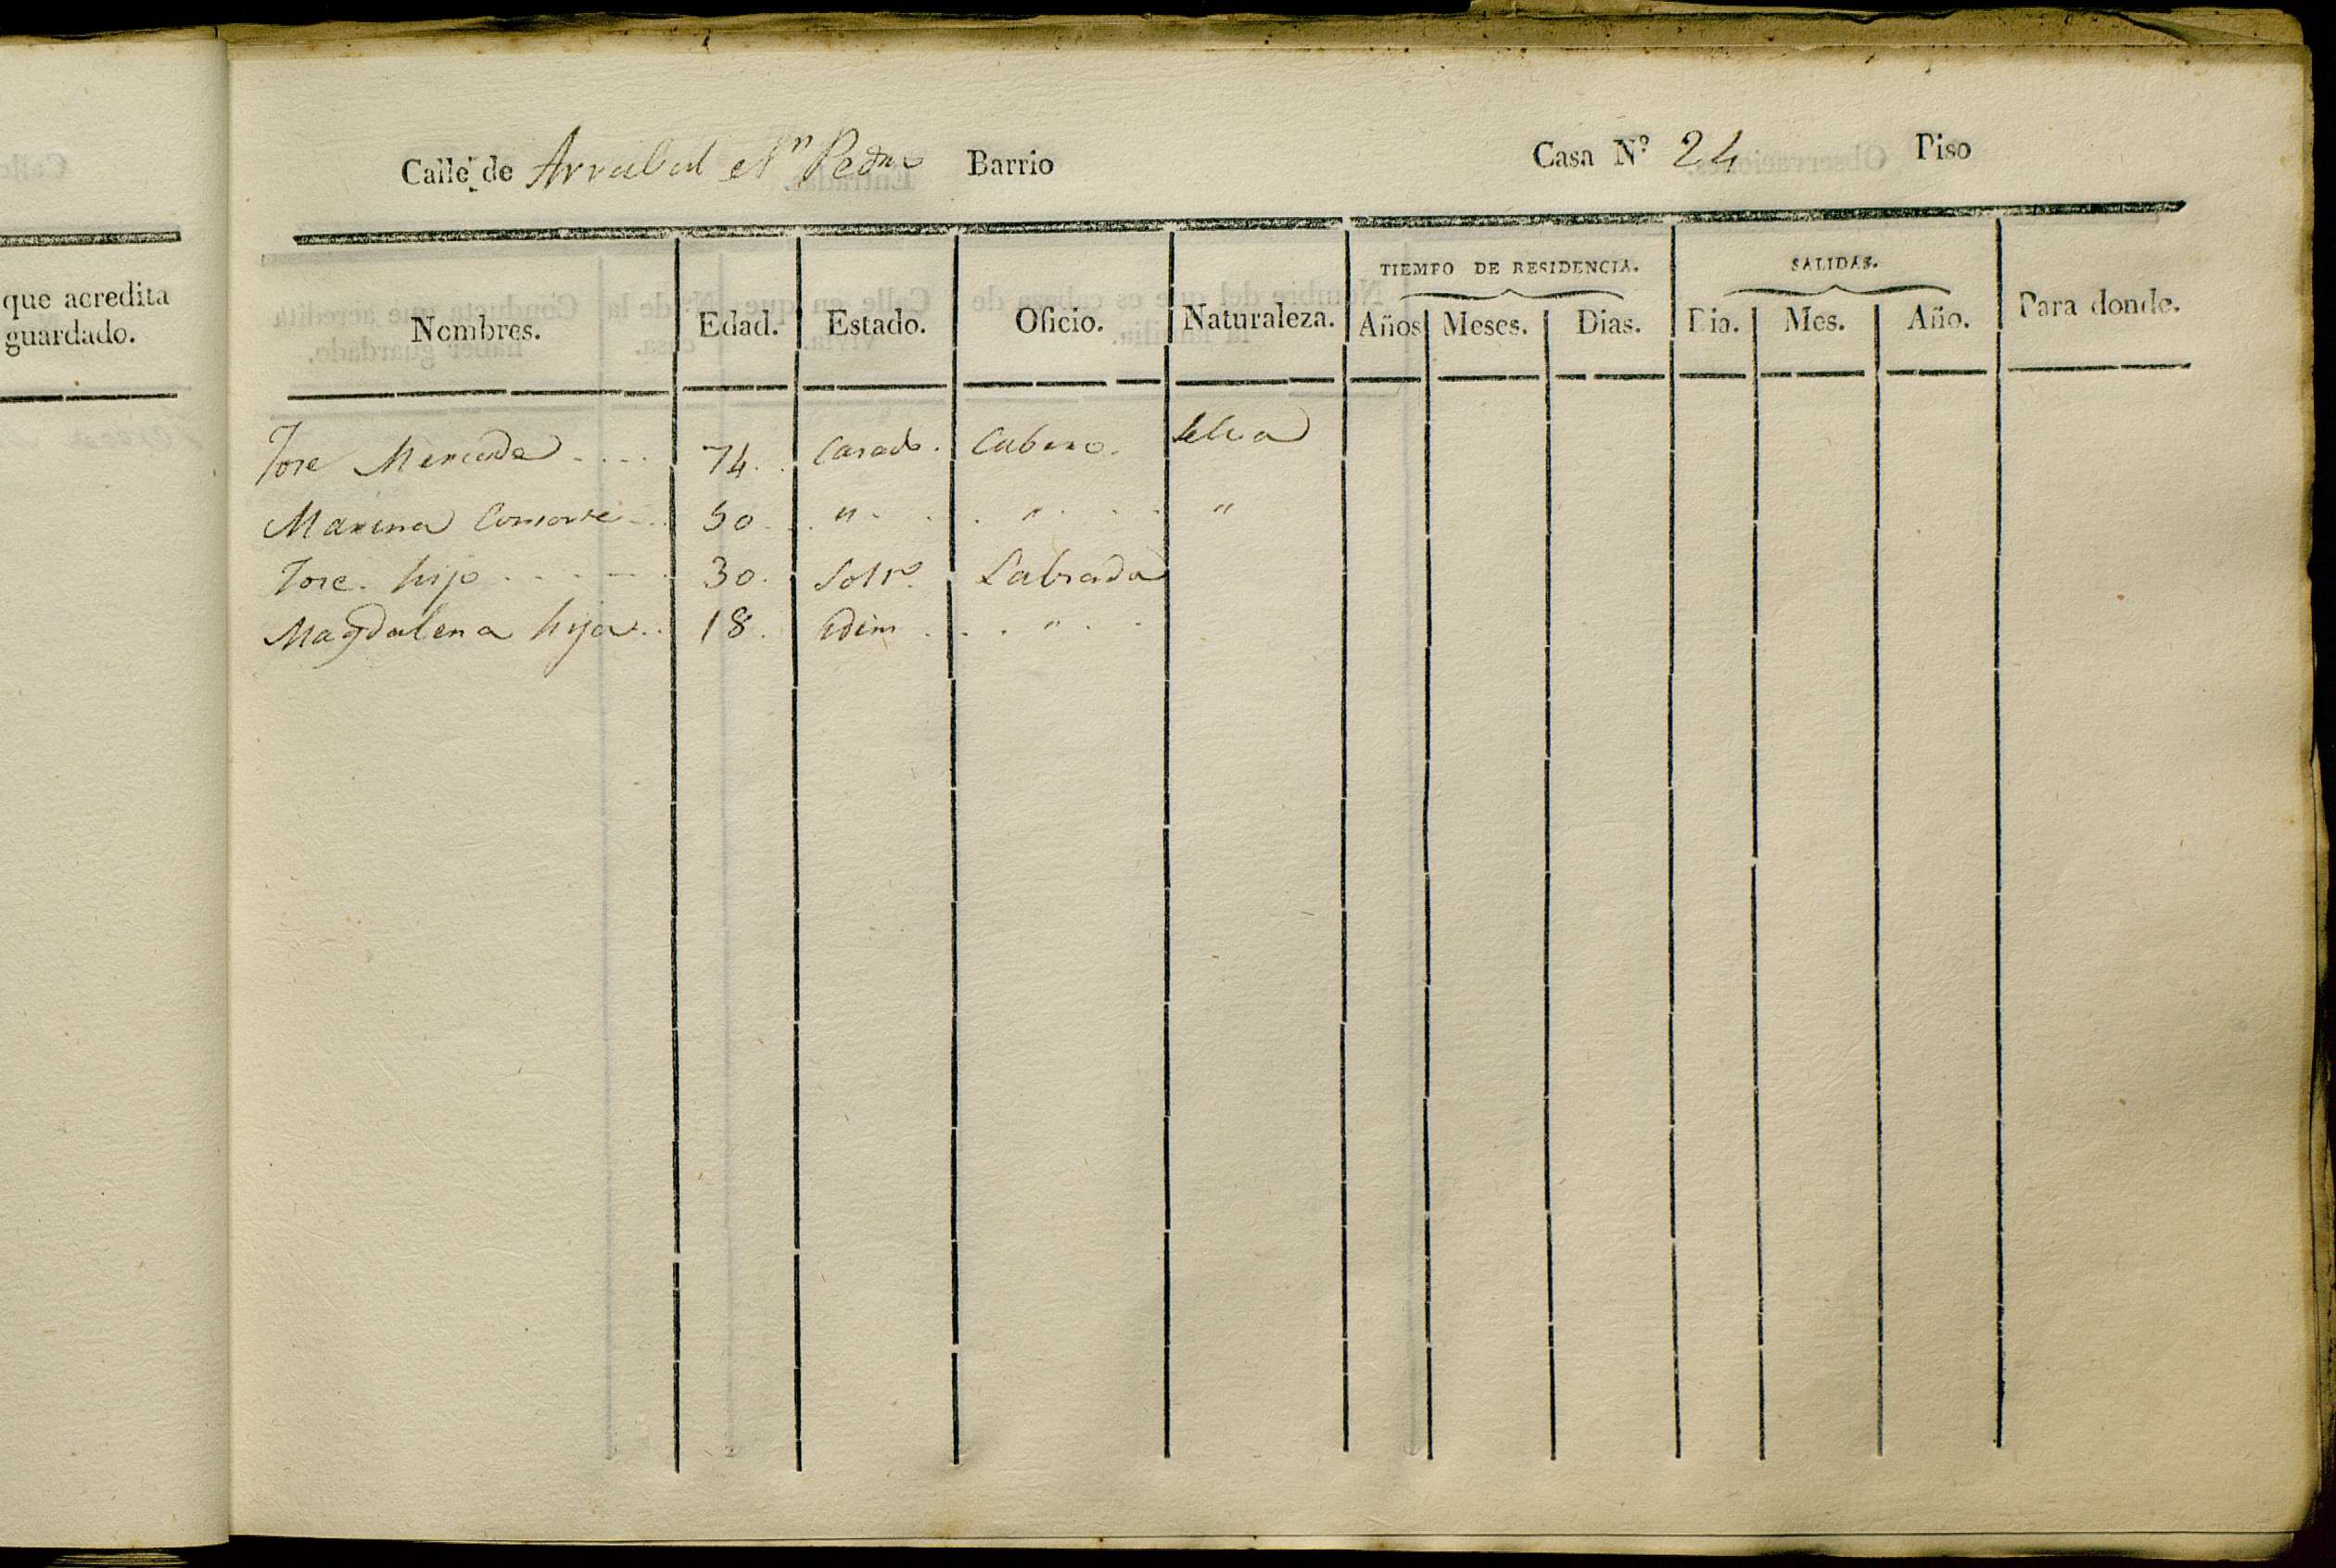 que acredita
guardado.
Calle de Arrabal Sn Pedro Barrio Casa Nº 24 Piso
TIEMPO DE RESIDENCIA. SALIDAS.
Nombres. Edad. Estado. Oficio. Naturaleza. Años Meses. Dias. Dia. Mes. Año. Para donde.
Jose Mercade .... 74. Casado. Cubero. Selva
Maxima Consorte .. 50. " " "
Jose hijo .... 30. Soltº. Labrador
Magdalena hija .. 18. Idem "